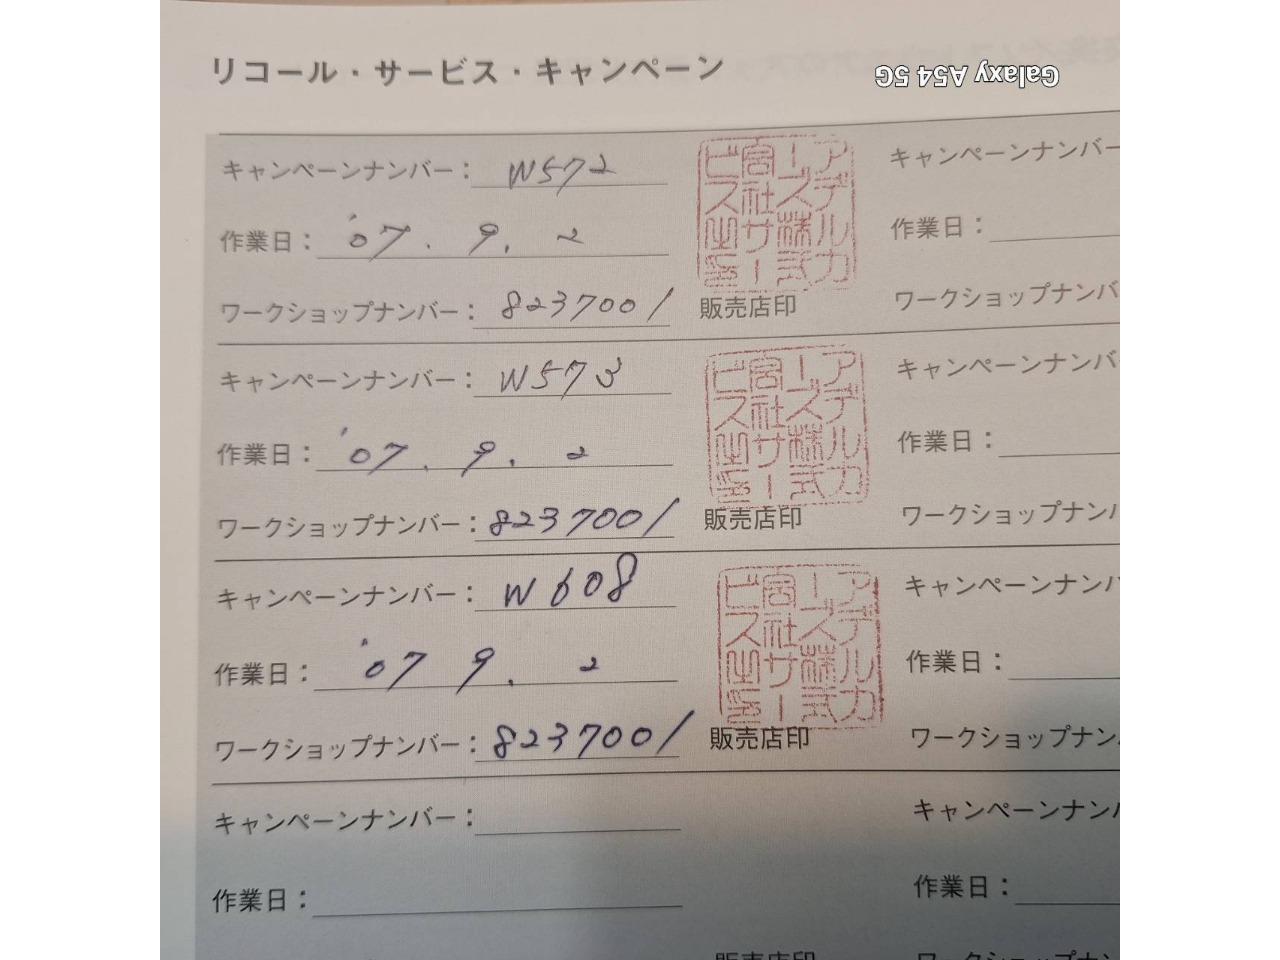 リコール・サービス・キャンペーン
Galaxy A54 5G
キャンペーンナンバー： W572
作業日： '07. 9. 2
ワークショップナンバー： 8237001
アデルカーズ株式会社サービス出宮印
販売店印
キャンペーンナンバー： W573
作業日： '07. 9. 2
ワークショップナンバー： 8237001
販売店印
キャンペーンナンバー： W608
作業日： '07 9. 2
ワークショップナンバー： 8237001
販売店印
キャンペーンナンバー：
作業日：
販売店印
キャンペーンナンバー
作業日：
ワークショップナンバ
キャンペーンナンバ
作業日：
ワークショップナン
キャンペーンナン
作業日：
ワークショップナン
キャンペーンナン
作業日：
ワークショップナン